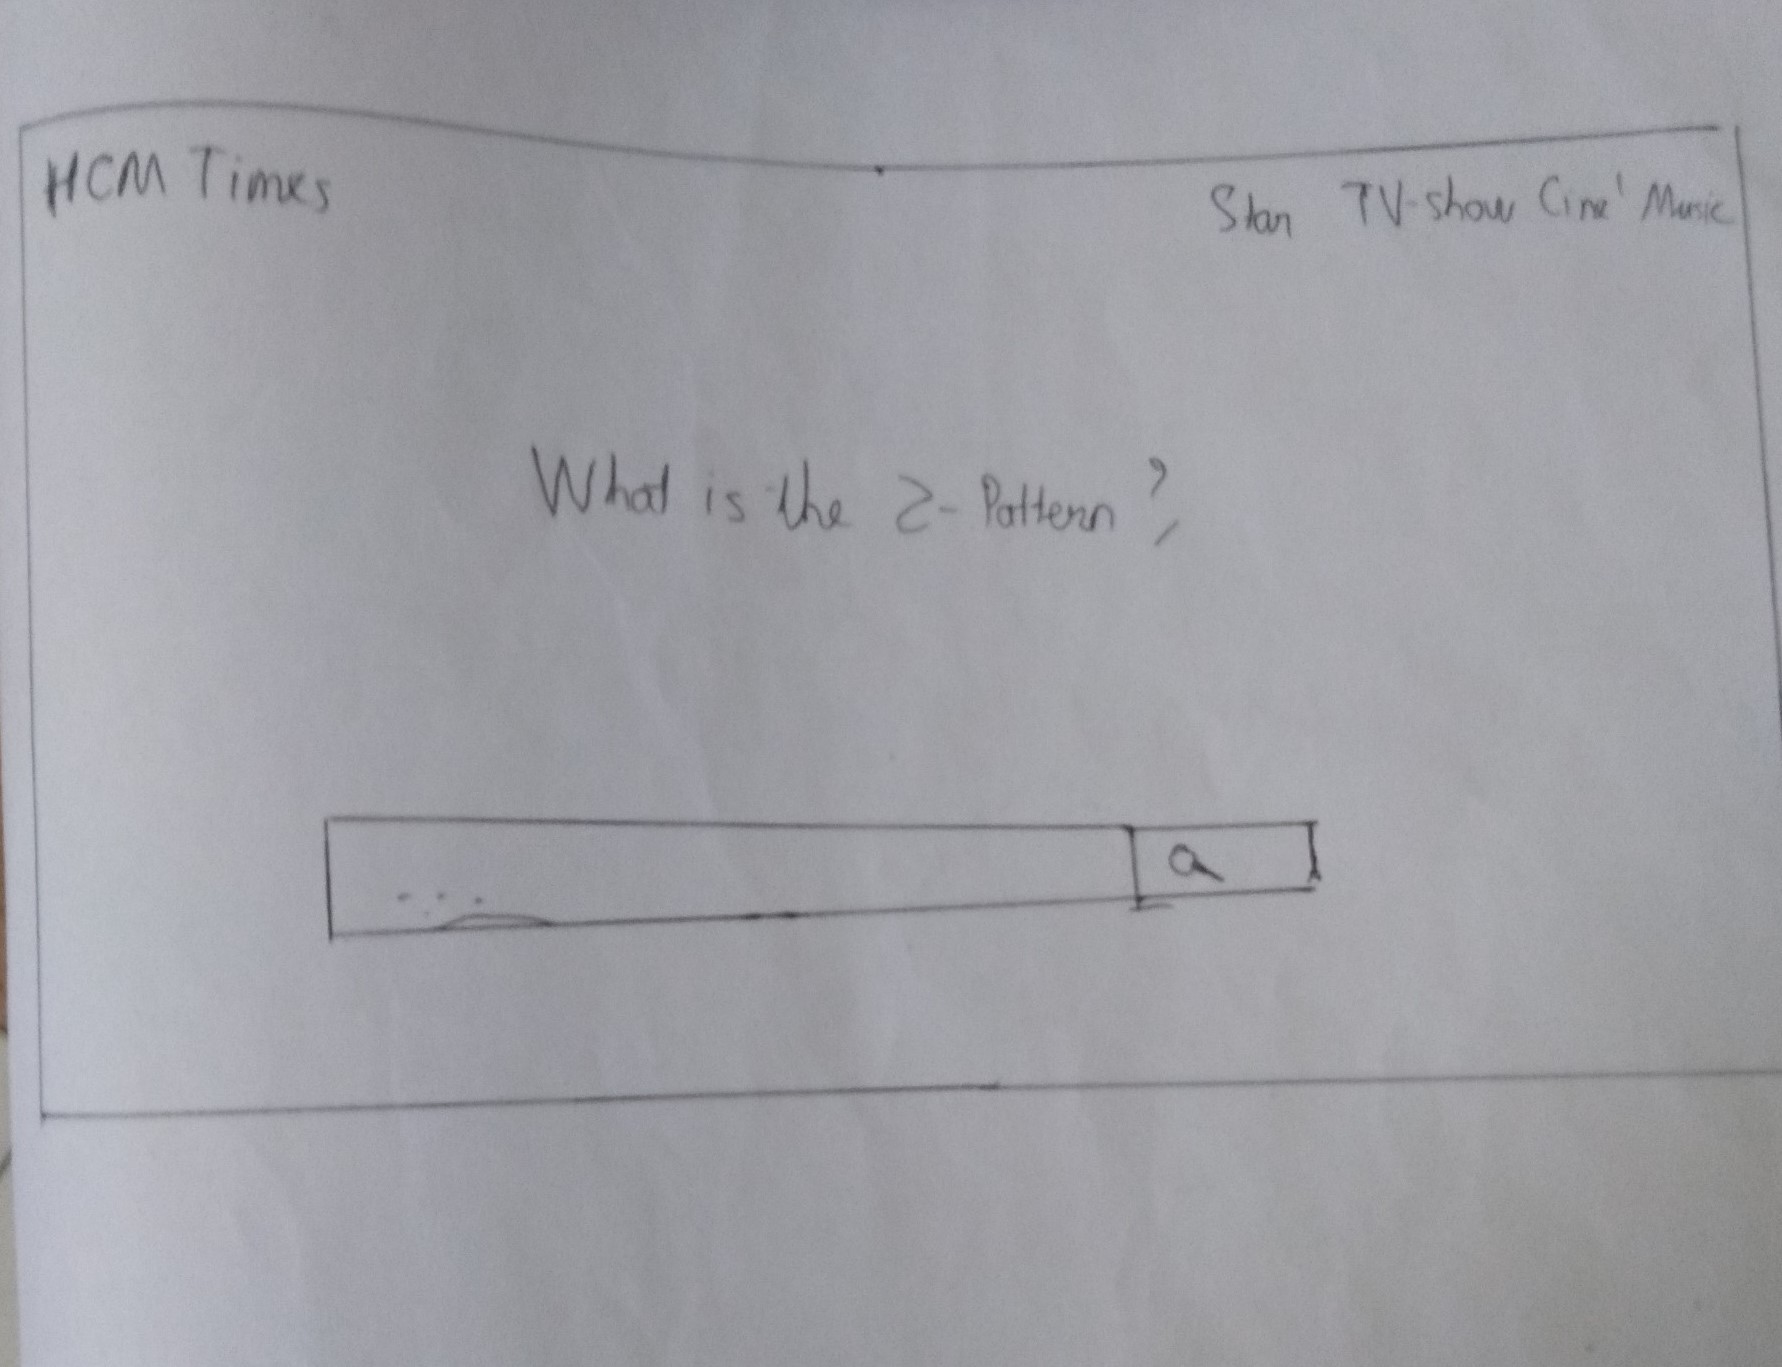 HCM Times
Star TV-show Cine' Music
What is the Z-Pattern?
...